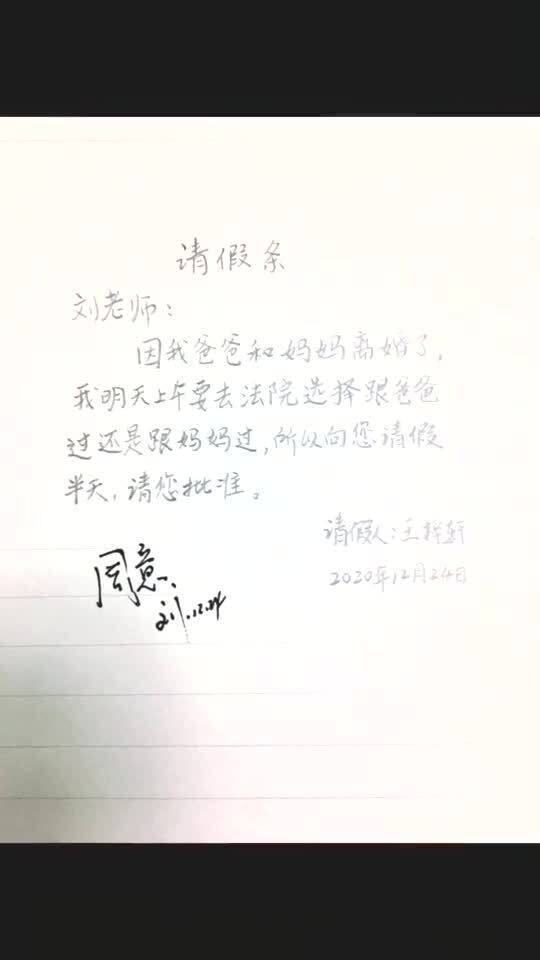 请假条
刘老师：
因我爸爸和妈妈离婚了，
我明天上午要去法院选择跟爸爸
过还是跟妈妈过，所以向您请假
半天，请您批准。
请假人：王梓轩
2020年12月24日
同意、
刘.12.24